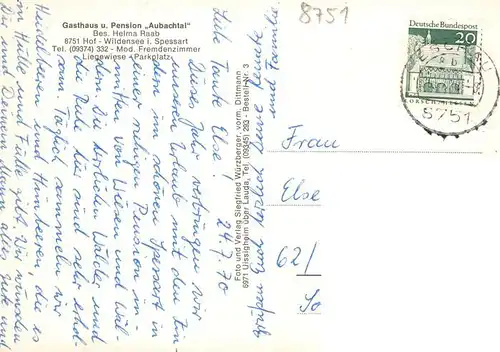 Gasthaus u. Pension „Aubachtal"
Bes. Helma Raab
8751 Hof - Wildensee i. Spessart
Tel. (09374) 332 - Mod. Fremdenzimmer
Liegewiese - Parkplatz
8751
Deutsche Bundespost
20
LORSCH/HESSEN
8751
24.7.70
Liebe Tante Else!
Dieses Jahr verbringen wir
unseren Urlaub mit den Kin-
dern im schönen Spessart in
einer ruhigen Pension in-
mitten von Wiesen und Wäl-
dern. Die herrlichen Wälder und
die Ruhe hier sind sehr erhol-
sam. Täglich sammeln wir
Heidelbeeren und Himbeeren, die es
in Hülle und Fülle gibt. Wir wünschen
Dir und Deinem Mann alles Gute und
grüßen Euch herzlich Deine Renate
und Familie
Foto und Verlag Siegfried Würzberger, vorm. Dittmann
6971 Uissigheim über Lauda, Tel. (09345) 293 - Bestell-Nr. 3
Frau
Else
62/
So